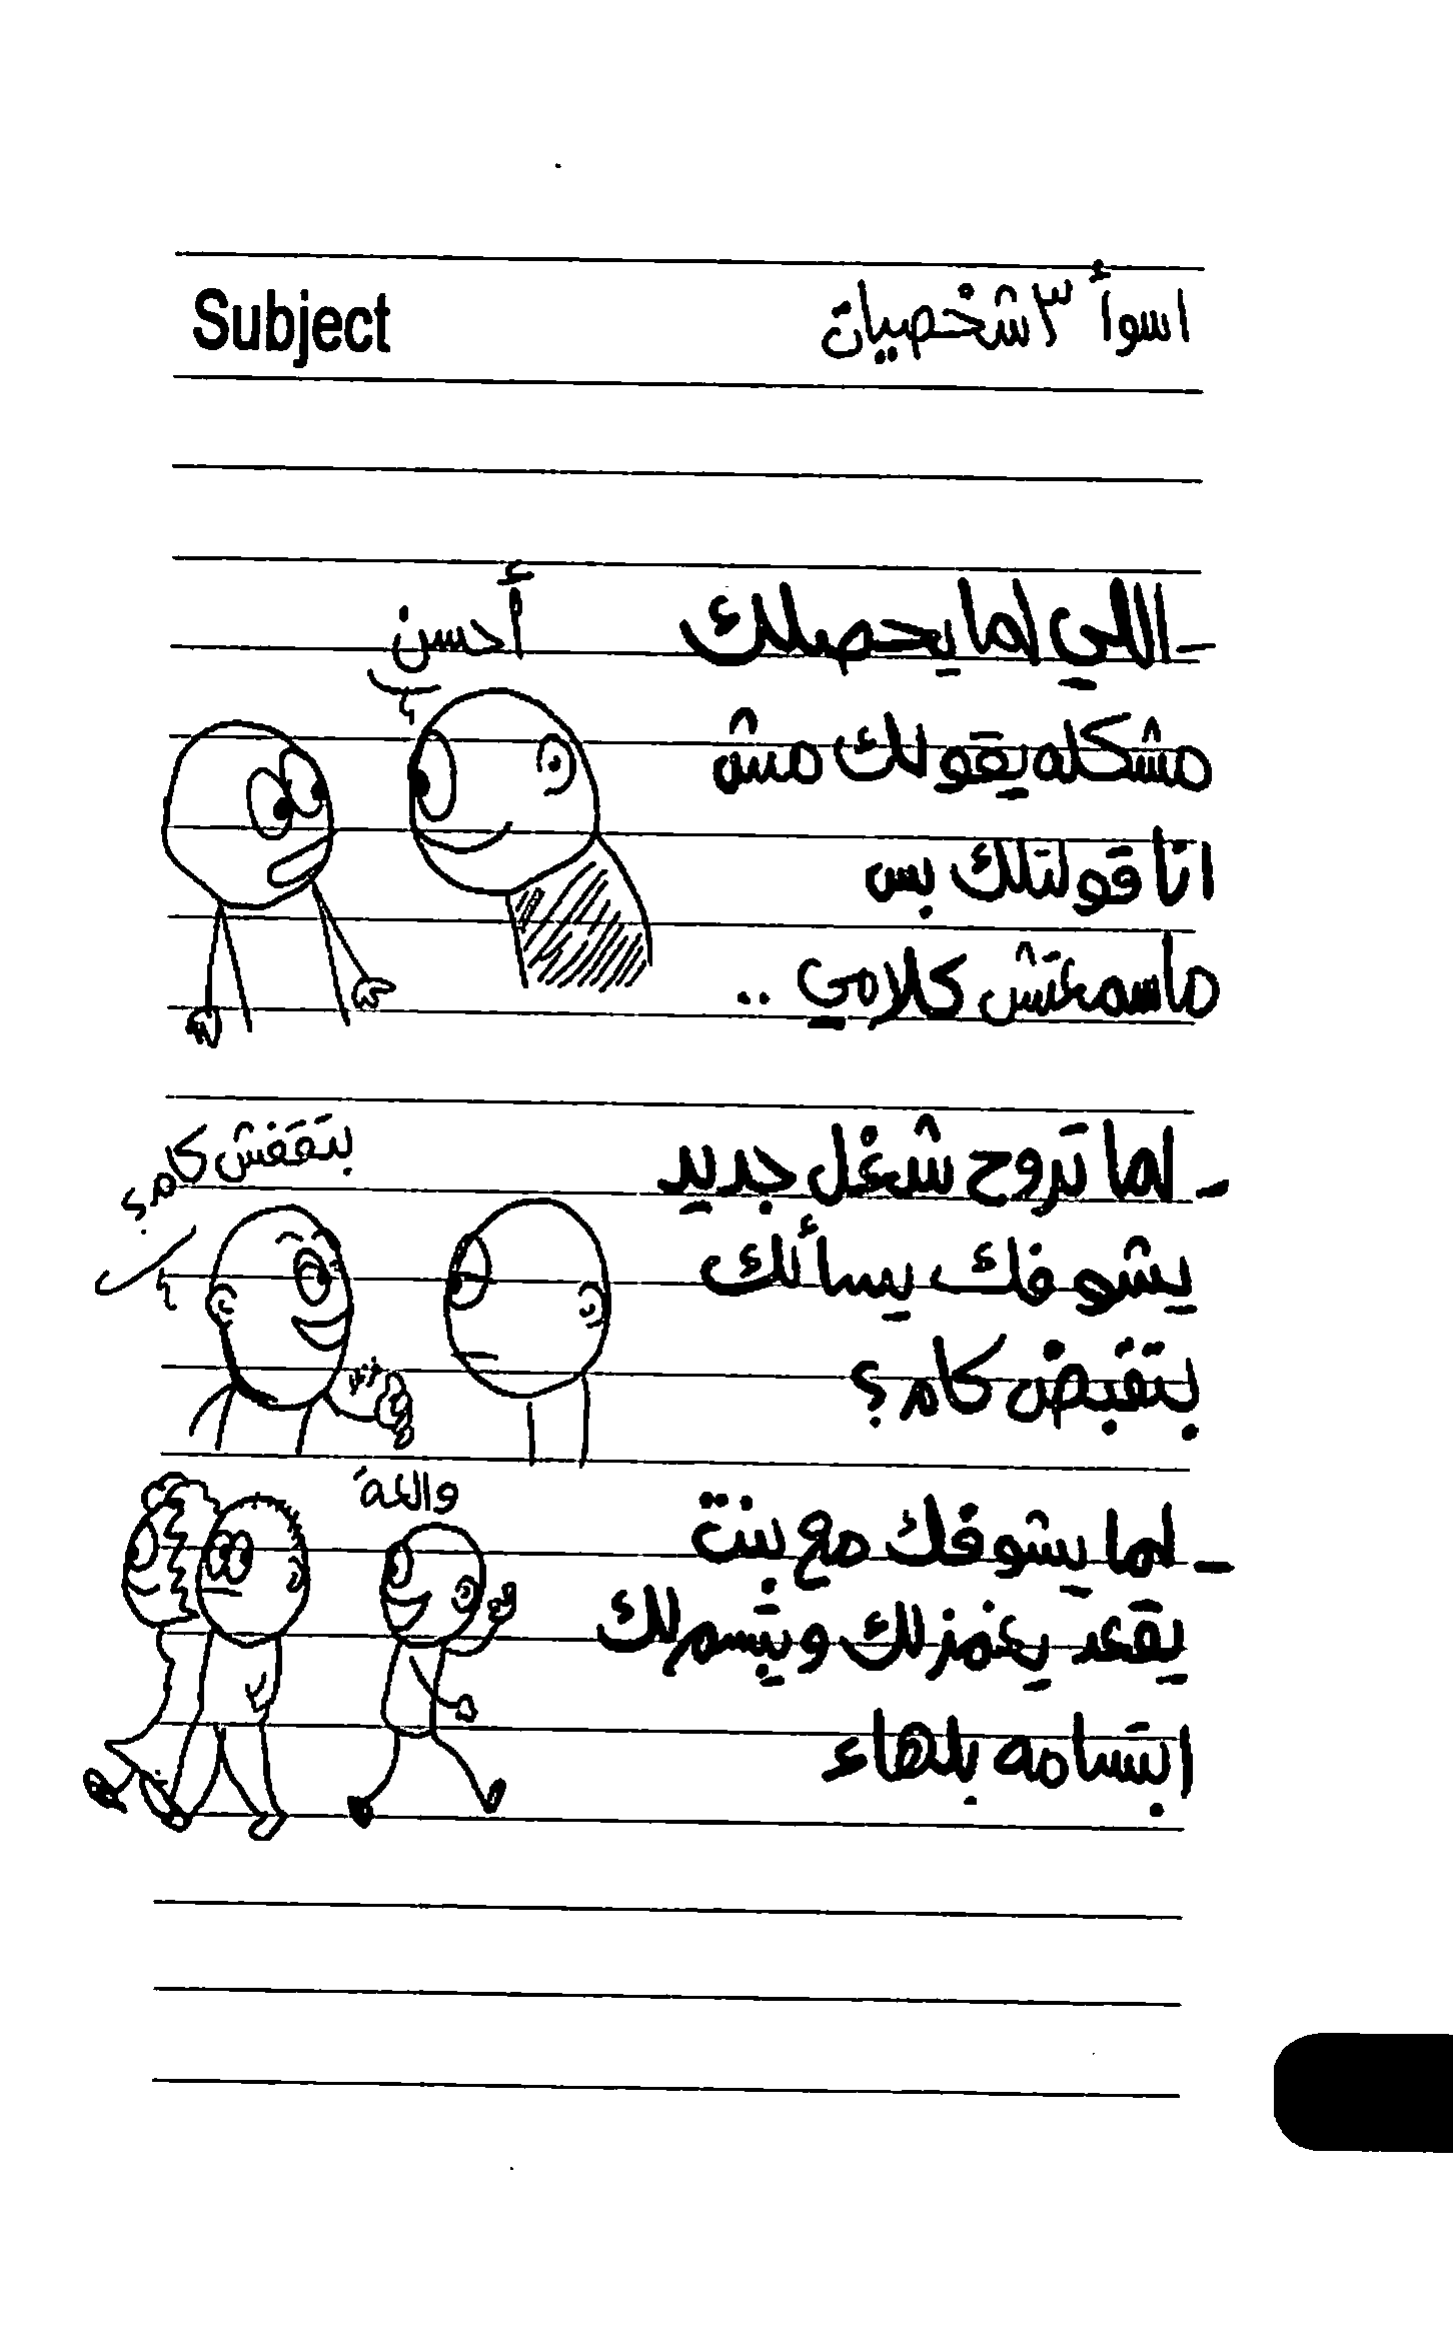 Subject
اسوأ ٣ شخصيات
أحسن
- اللي لما يحصلك
مشكله يقولك مش
انا قولتلك بس
ماسمعتش كلامي ..
بتقفش كام؟
- لما تروح شغل جديد
يشوفك يسألك
بتقبض كام؟
والله
- لما يشوفك مع بنت
يقعد يغمزلك ويبسملك
ابتسامه بلهاء